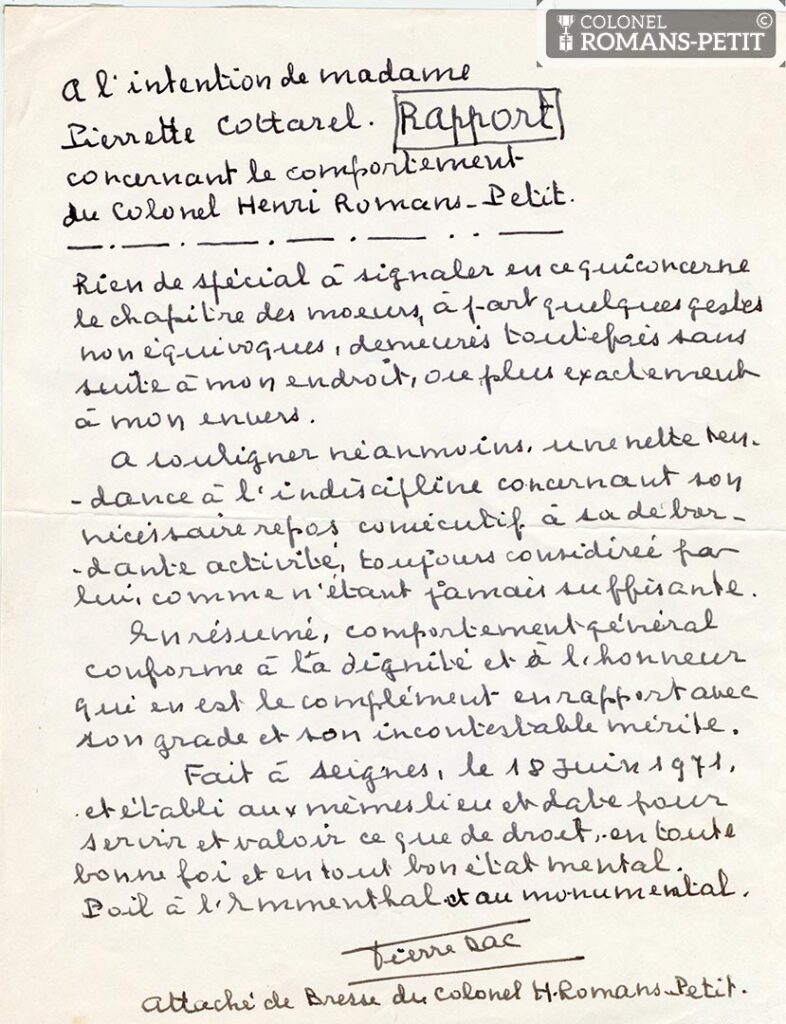 COLONEL ©
ROMANS-PETIT
A l'intention de madame
Pierrette Cottarel. Rapport
concernant le comportement
du Colonel Henri Romans-Petit.
Rien de spécial à signaler en ce qui concerne
le chapitre des moeurs, à part quelques gestes
non équivoques, demeurés toutefois sans
suite à mon endroit, ou plus exactement
à mon envers.
A souligner néanmoins, une nette ten-
-dance à l'indiscipline concernant son
nécessaire repos consécutif à sa débor-
-dante activité, toujours considérée par
lui, comme n'étant jamais suffisante.
En résumé, comportement général
conforme à la dignité et à l'honneur
qui en est le complément en rapport avec
son grade et son incontestable mérite.
Fait à Seignes, le 18 Juin 1971,
et établi aux mêmes lieu et date pour
servir et valoir ce que de droit, en toute
bonne foi et en tout bon état mental.
Poil à l'Emmenthal et au monumental.
Pierre Dac
Attaché de Bresse du Colonel H. Romans-Petit.